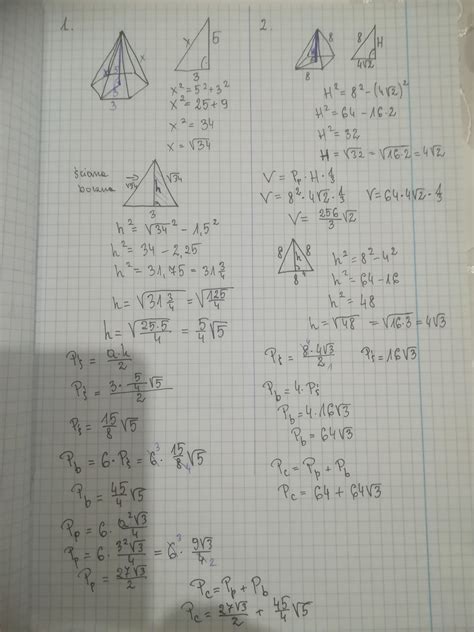 1.
x
5
3
x
5
3
x² = 5² + 3²
x² = 25 + 9
x² = 34
x = √34
ściana boczna
√34
√34
h
3
h² = √34² - 1,5²
h² = 34 - 2,25
h² = 31,75 = 31 3/4
h = √(31 3/4) = √(125/4)
h = √(25·5/4) = 5/4 √5
Pś = a·h/2
Pś = 3·5/4√5/2
Pś = 15/8 √5
Pb = 6·Pś = 6³ · 15/8₄ √5
Pb = 45/4 √5
Pp = 6 · a²√3/4
Pp = 6 · 3²√3/4 = 6³ · 9√3/4₂
Pp = 27√3/2
Pc = Pp + Pb
Pc = 27√3/2 + 45/4 √5
2.
8
8
8
8
H
4√2
H² = 8² - (4√2)²
H² = 64 - 16·2
H² = 32
H = √32 = √16·2 = 4√2
V = Pp · H · 1/3
V = 8² · 4√2 · 1/3 V = 64 · 4√2 · 1/3
V = 256/3 √2
8
h
8
8
h² = 8² - 4²
h² = 64 - 16
h² = 48
h = √48 = √16·3 = 4√3
Pś = 8·4√3/2₁ Pś = 16√3
Pb = 4 · Pś
Pb = 4 · 16√3
Pb = 64√3
Pc = Pp + Pb
Pc = 64 + 64√3